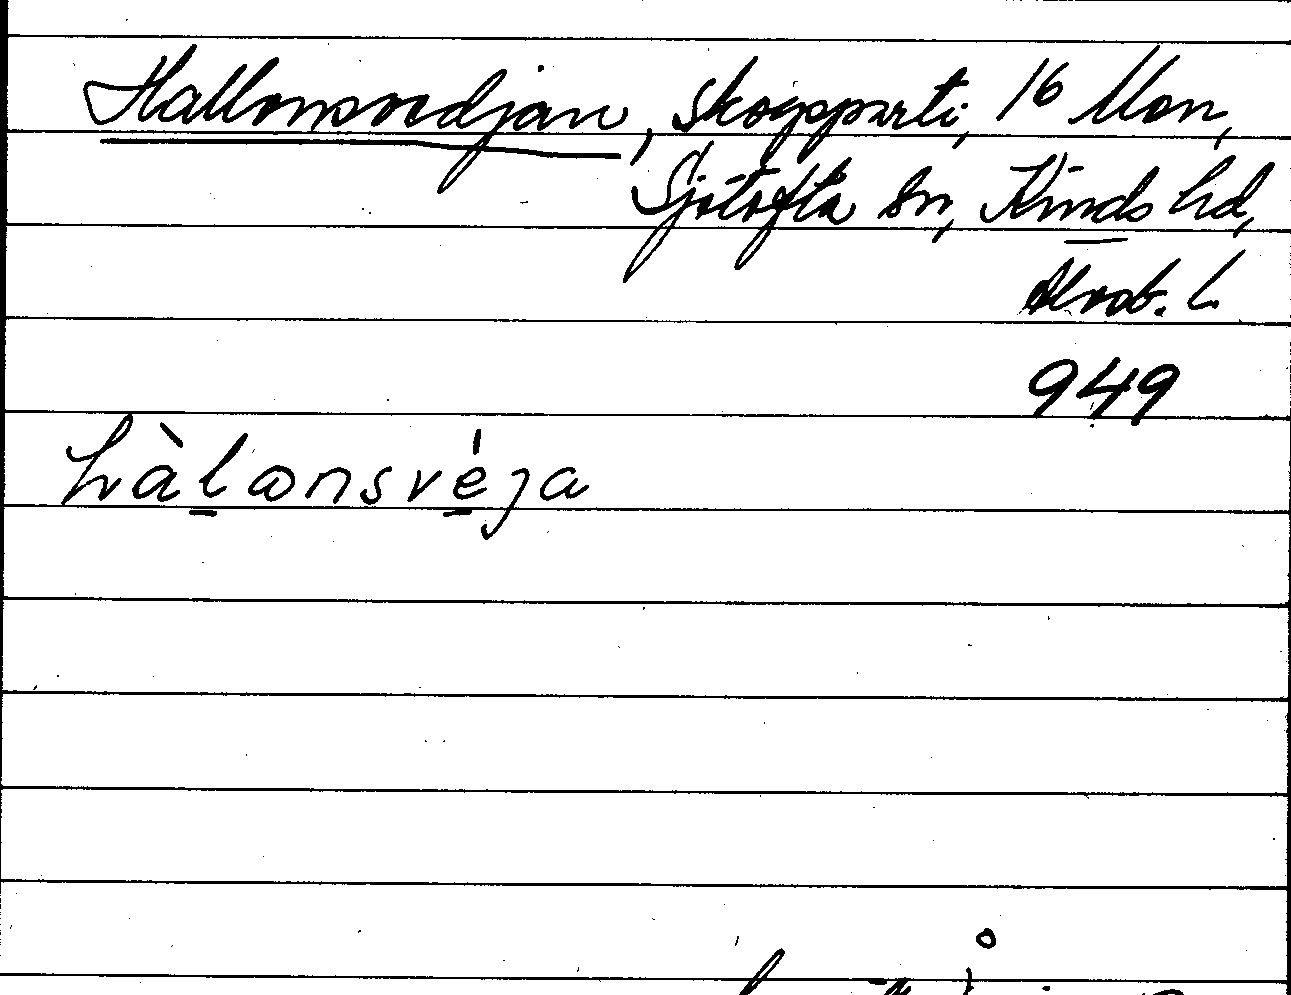 Hallonsvedjan, skogsparti, 16 Mon,
Sjötofta sn, Kinds hd,
Älvsb. l.
949
hàlɷnsvéja